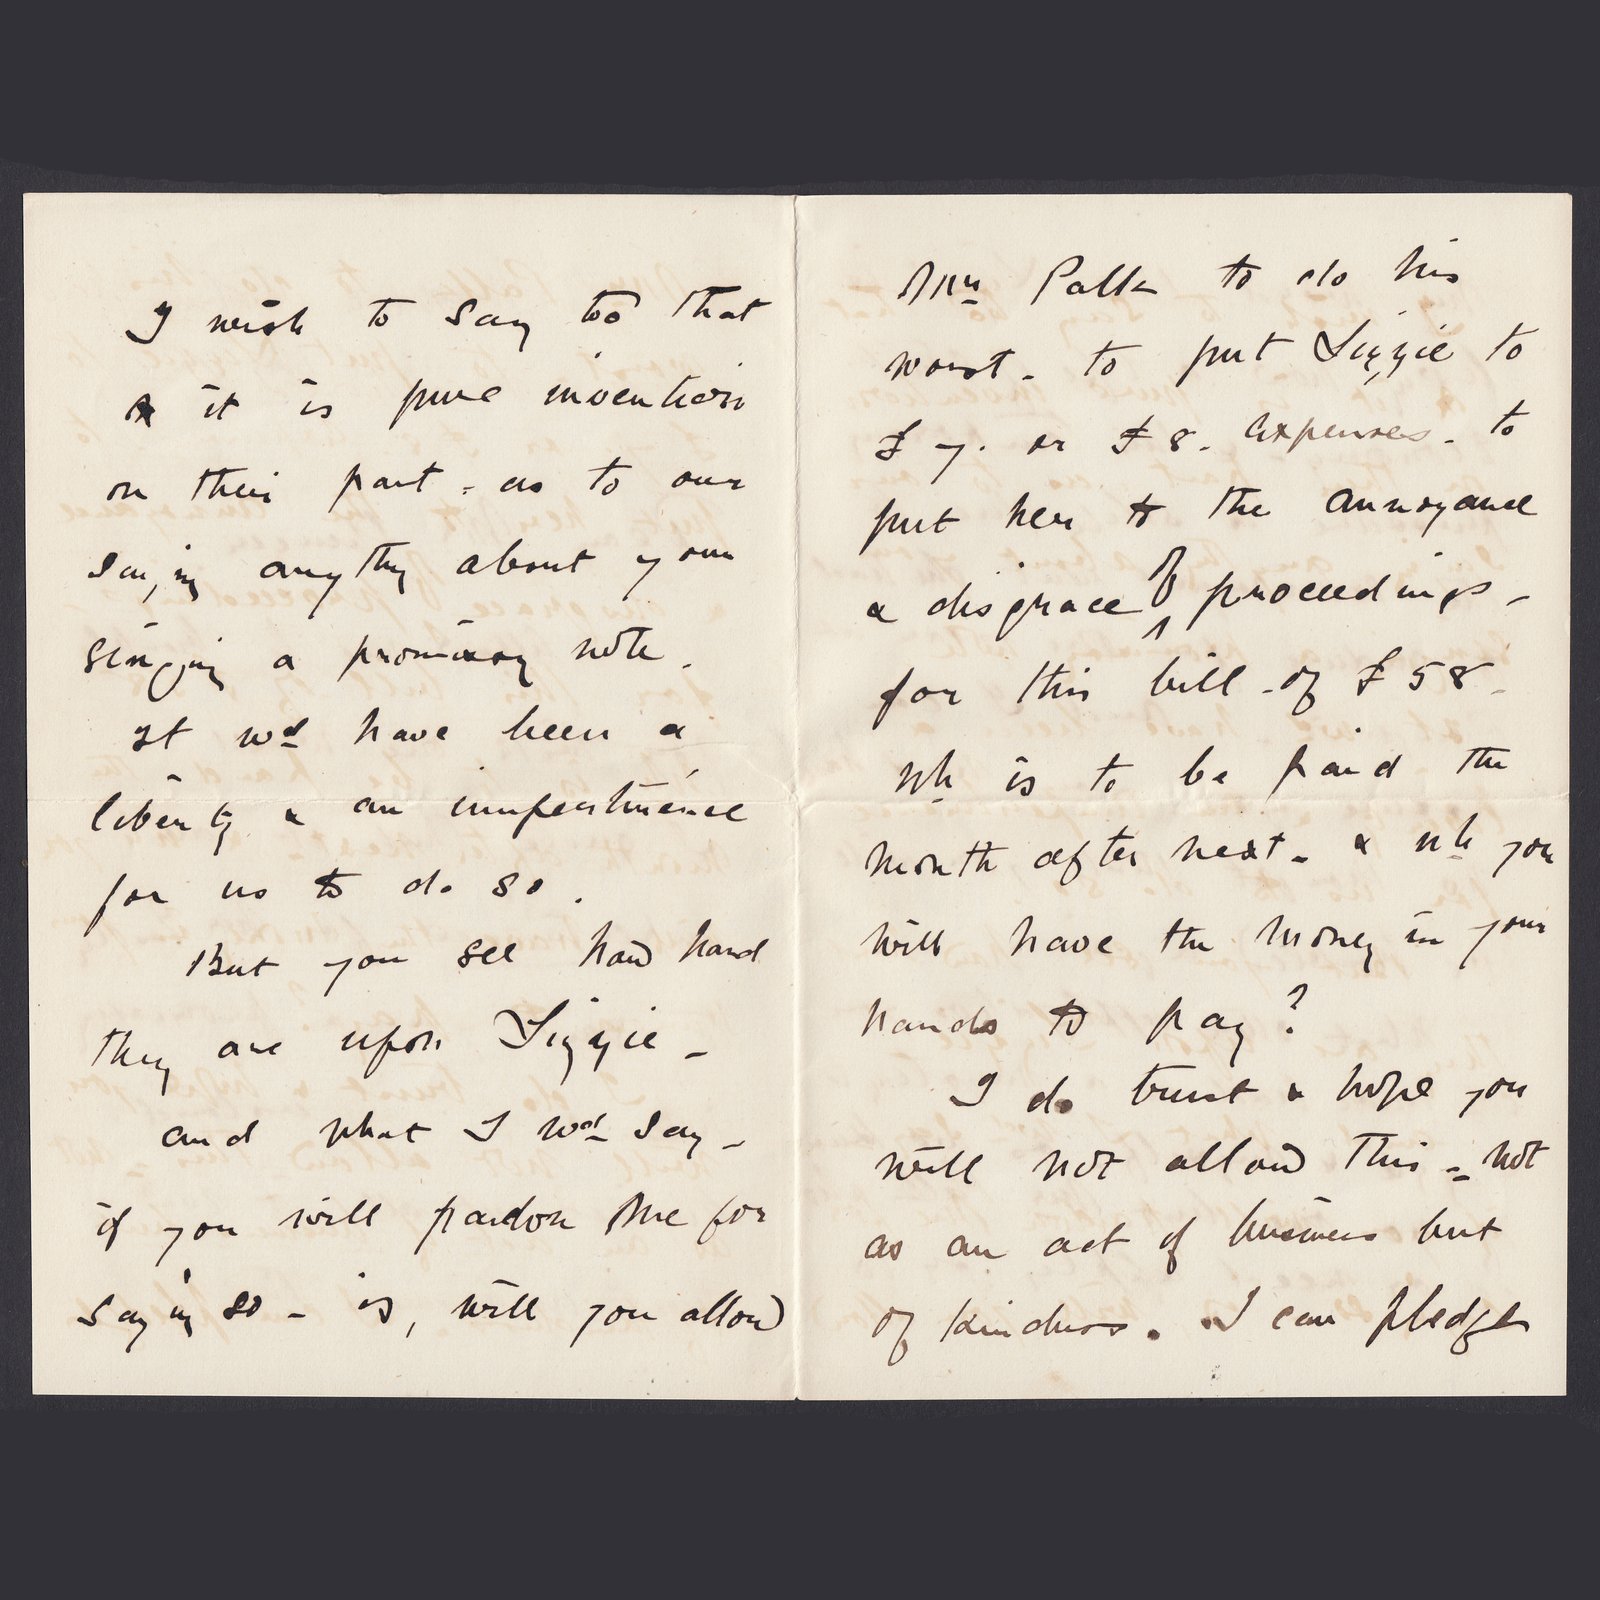 I wish to say too that
it is pure invention
on their part - as to our
saying anythg about your
singing a promissory note.
It wd have been a
liberty & an impertinence
for us to do so.
But you see how hard
they are upon Lizzie -
and what I wd say -
if you will pardon me for
saying so - is, will you allow
to do his
worst - to put Lizzie to
£7. or £8. expenses - to
put her to the annoyance
& disgrace of proceedings -
for this bill - of £58 -
wh is to be paid the
month after next - & wh you
will have the money in your
hands to pay?
I do trust & hope you
will not allow this - not
as an act of business but
of kindness. I can pledge